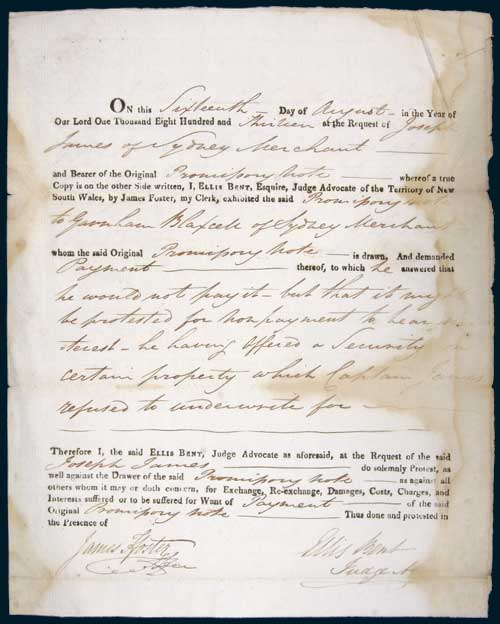 ON this Sixteenth Day of August in the Year of
Our Lord One Thousand Eight Hundred and Thirteen at the Request of Joseph
James of Sydney Merchant
and Bearer of the Original Promissory Note whereof a true
Copy is on the other Side written, I, ELLIS BENT, Esquire, Judge Advocate of the Territory of New
South Wales, by James Foster, my Clerk, exhibited the said Promissory
to Garnham Blaxcell of Sydney Merchant
whom the said Original Promissory Note is drawn, And demanded
Payment thereof, to which he answered that
he would not pay it – but that it
be protested for nonpayment to bear
terest – he having offered a Security
certain property which Captain James
refused to underwrite for –
Therefore I, the said ELLIS BENT, Judge Advocate as aforesaid, at the Request of the said
Joseph James do solemnly Protest, as
well against the Drawer of the said Promissory Note as against all
others whom it may or doth concern, for Exchange, Re-exchange, Damages, Costs, Charges, and
Interests suffered or to be suffered for Want of Payment of the said
Original Promissory Note Thus done and protested in
the Presence of
James Foster Ellis Bent
Judge